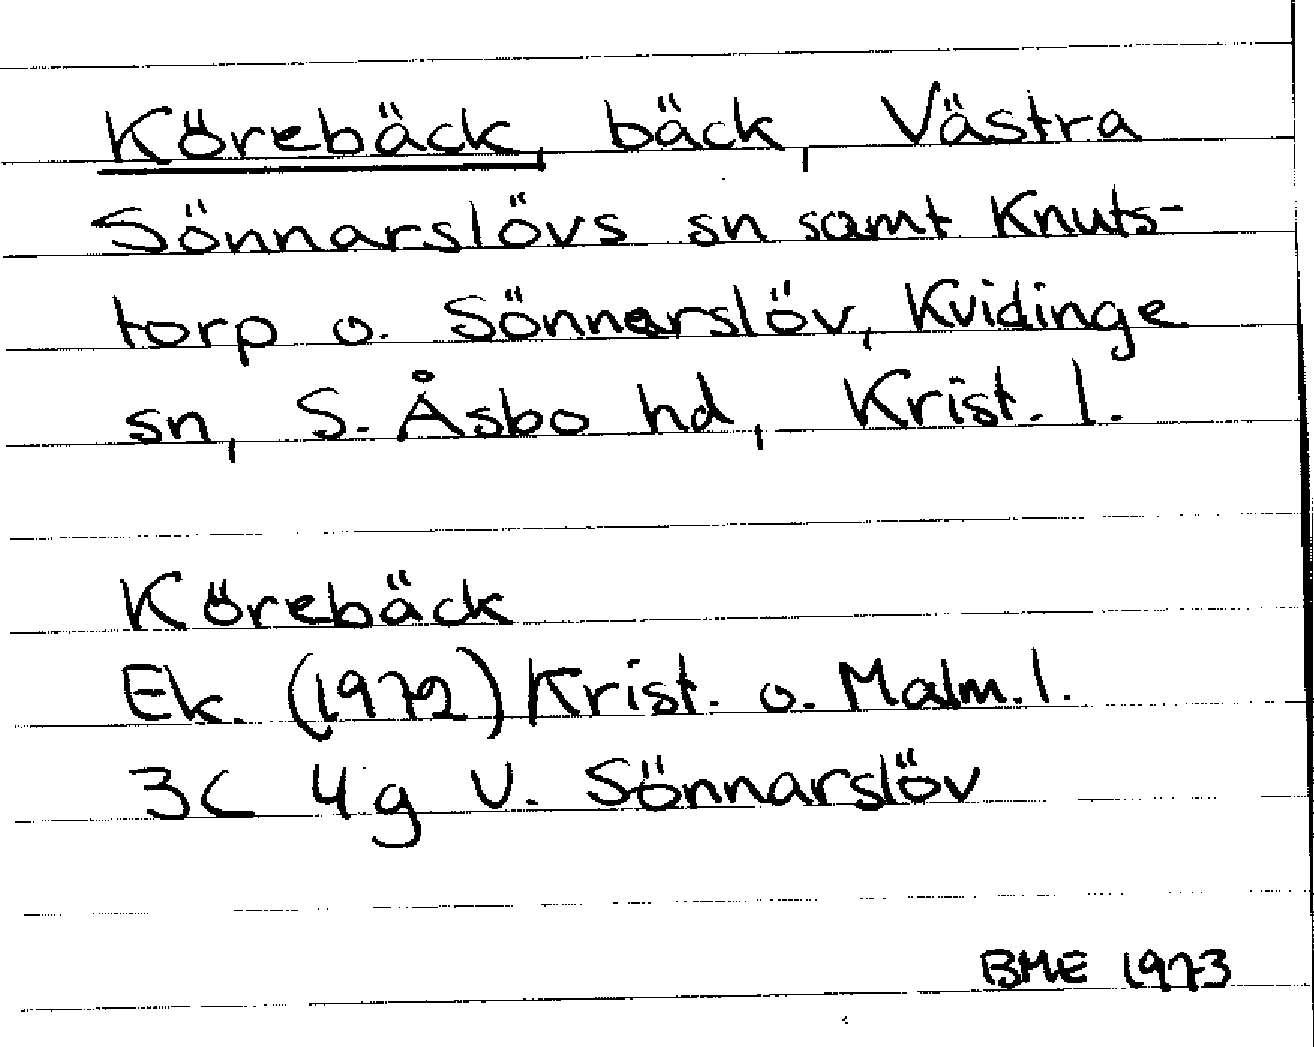 Körebäck, bäck, Västra
Sönnarslövs sn samt Knuts-
torp o. Sönnarslöv, Kvidinge
sn, S. Åsbo hd, Krist. l.
Körebäck
Ek. (1972) Krist. o. Malm. l.
3C 4g V. Sönnarslöv
BME 1973